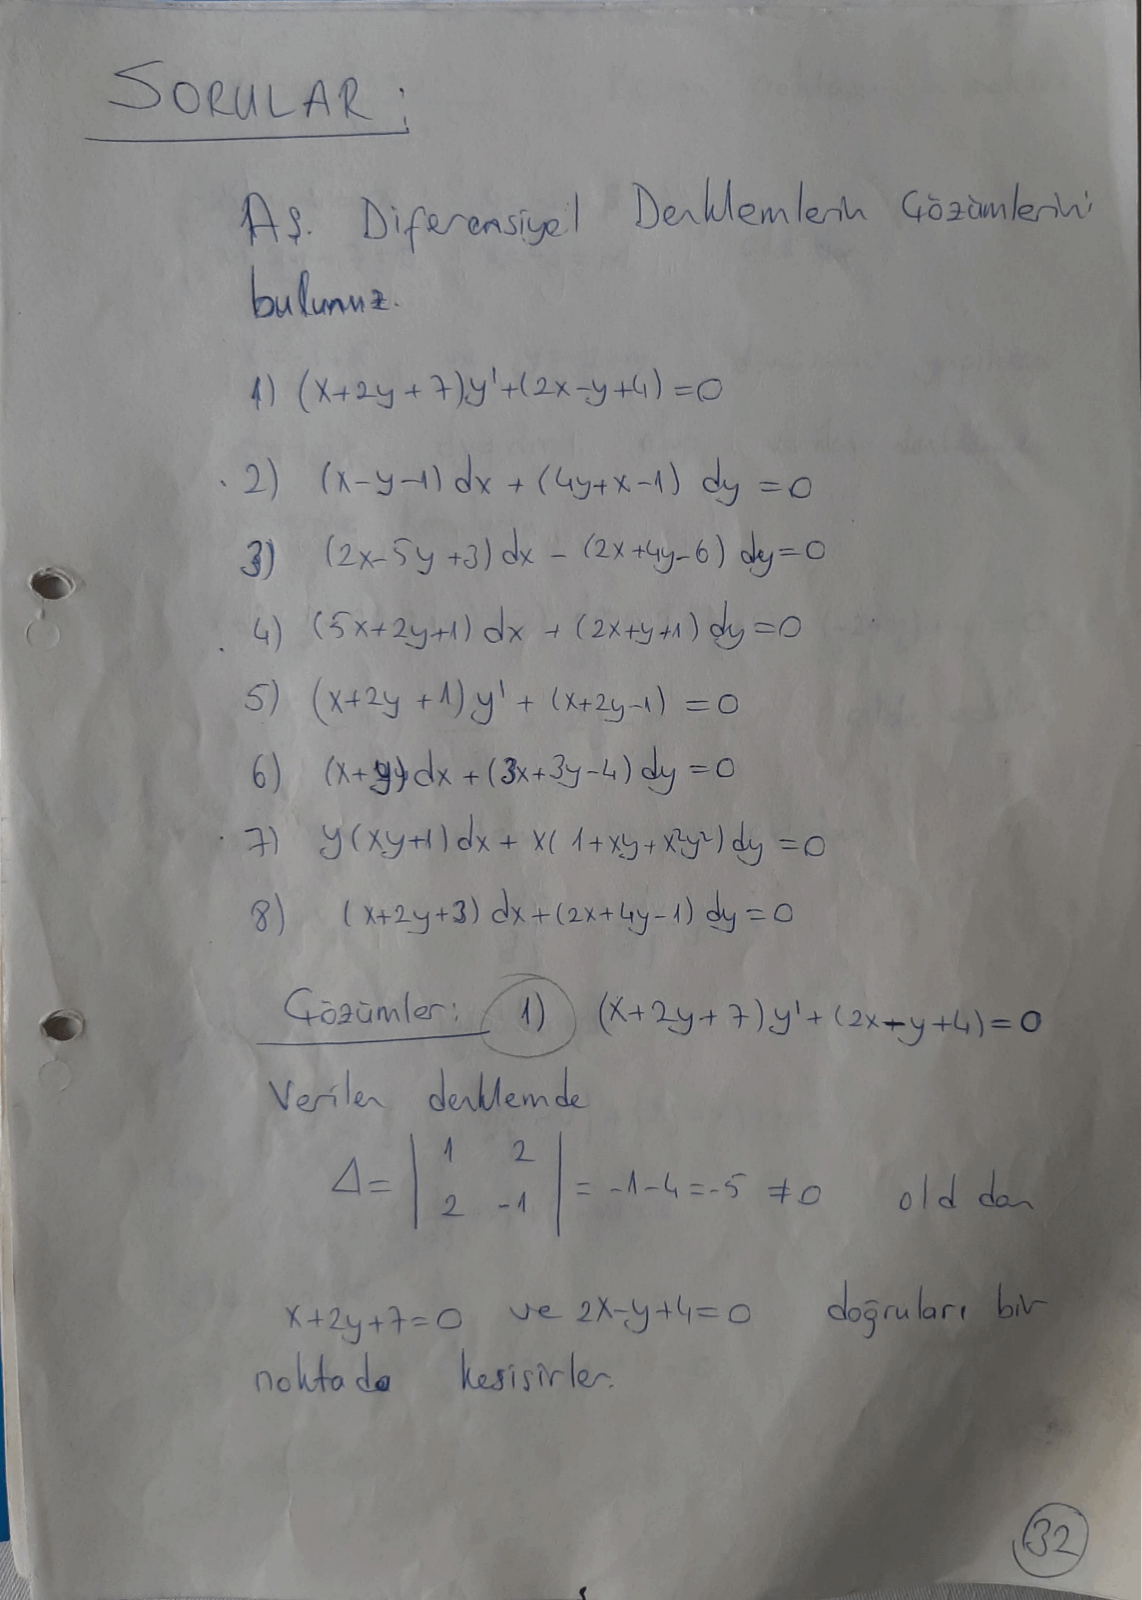 SORULAR:
Aş. Diferensiyel Denklemlerin Çözümlerini
bulunuz.
1) (x+2y+7)y'+(2x-y+4)=0
2) (x-y-1)dx + (4y+x-1) dy =0
3) (2x-5y+3)dx - (2x+4y-6) dy=0
4) (5x+2y+1)dx + (2x+y+1)dy=0
5) (x+2y+1)y' + (x+2y-1) =0
6) (x+y)dx+(3x+3y-4)dy=0
7) y(xy+1)dx + x(1+xy+x²y²)dy =0
8) (x+2y+3) dx+(2x+4y-1) dy=0
Çözümler: 1) (x+2y+7)y'+(2x-y+4)=0
Verilen denklemde
Δ= | 1 2 |
| 2 -1 | = -1-4=-5 ≠0 old dan
x+2y+7=0 ve 2x-y+4=0 doğruları bir
noktada kesişirler.
32